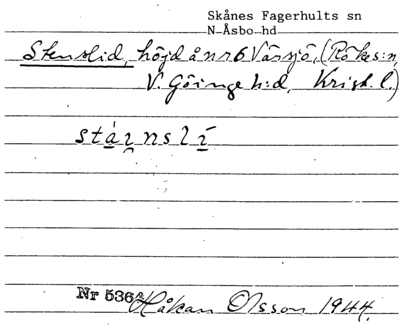 Skånes Fagerhults sn
N Åsbo hd
Stenslid, höjd å nr 6 Värsjö, (Rökes:n,
V. Göinge h:d, Krist. l.)
stáɪ̯nslī
Nr 536 Håkan Olsson 1944.